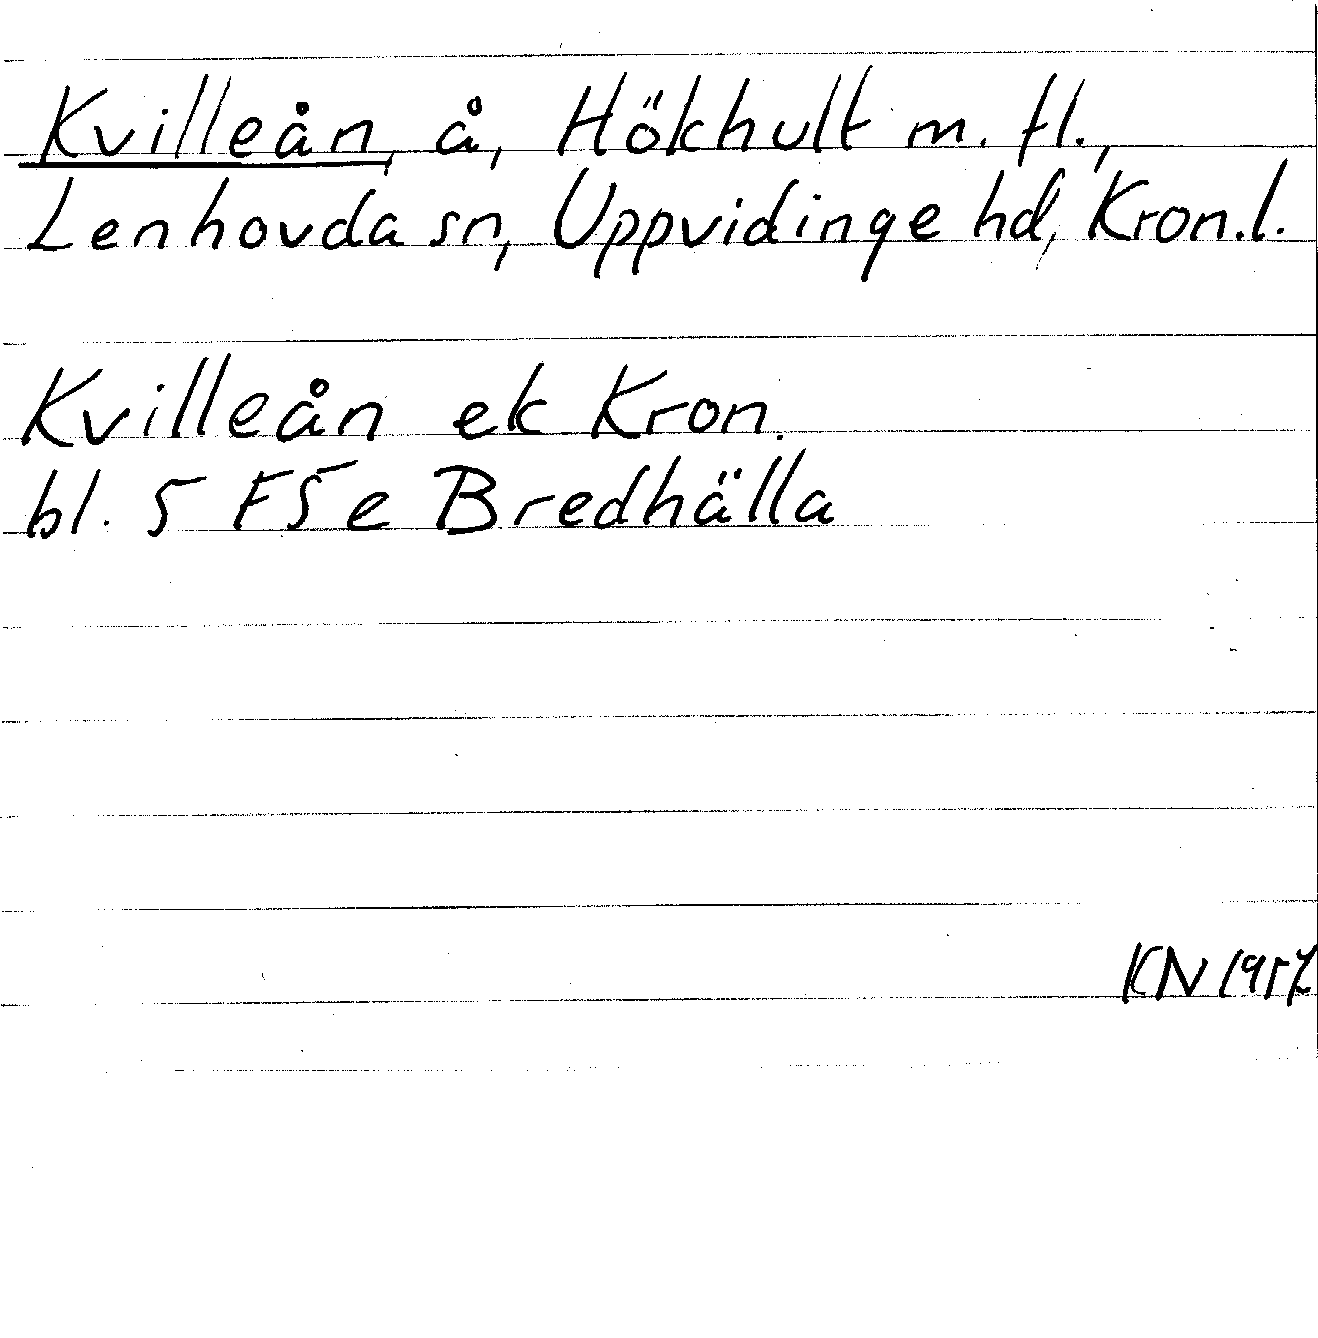 Kvilleån, å, Hökhult m. fl.,
Lenhovda sn, Uppvidinge hd, Kron.l.
Kvilleån ek Kron.
bl. 5 F5e Bredhälla
KN 1957